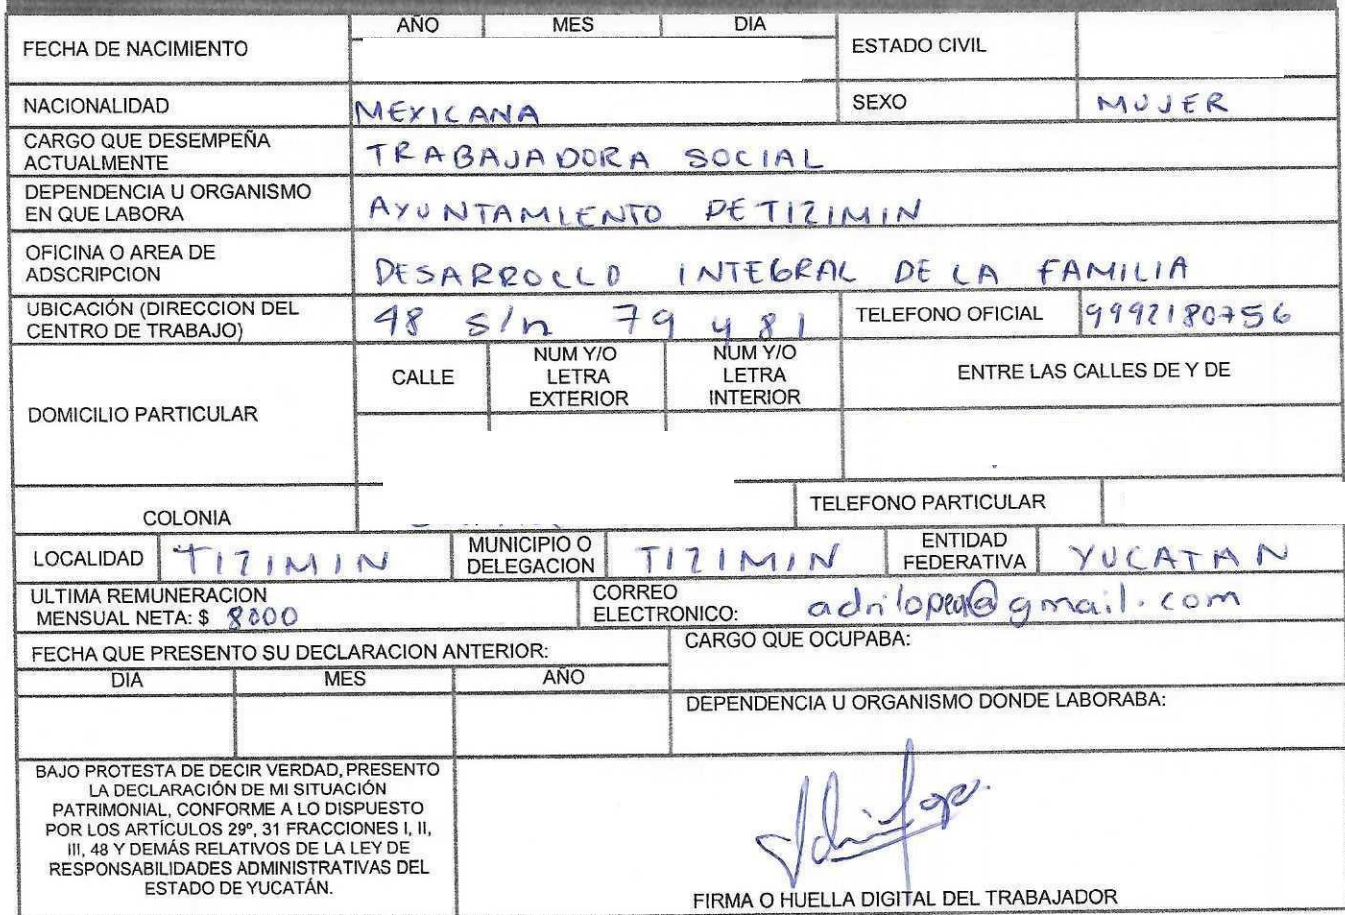 AÑO MES DIA
FECHA DE NACIMIENTO ESTADO CIVIL
NACIONALIDAD MEXICANA SEXO MUJER
CARGO QUE DESEMPEÑA
ACTUALMENTE TRABAJADORA SOCIAL
DEPENDENCIA U ORGANISMO
EN QUE LABORA AYUNTAMIENTO DE TIZIMIN
OFICINA O AREA DE
ADSCRIPCION DESARROLLO INTEGRAL DE LA FAMILIA
UBICACIÓN (DIRECCION DEL
CENTRO DE TRABAJO) 48 s/n 79 y 81 TELEFONO OFICIAL 9992180756
DOMICILIO PARTICULAR
CALLE
NUM Y/O
LETRA
EXTERIOR
NUM Y/O
LETRA
INTERIOR
ENTRE LAS CALLES DE Y DE
COLONIA TELEFONO PARTICULAR
LOCALIDAD TIZIMIN
MUNICIPIO O
DELEGACION TIZIMIN
ENTIDAD
FEDERATIVA YUCATAN
ULTIMA REMUNERACION
MENSUAL NETA: $ 8000
CORREO
ELECTRONICO:
FECHA QUE PRESENTO SU DECLARACION ANTERIOR:
CARGO QUE OCUPABA:
DIA MES AÑO
DEPENDENCIA U ORGANISMO DONDE LABORABA:
BAJO PROTESTA DE DECIR VERDAD, PRESENTO
LA DECLARACIÓN DE MI SITUACIÓN
PATRIMONIAL, CONFORME A LO DISPUESTO
POR LOS ARTÍCULOS 29º, 31 FRACCIONES I, II,
III, 48 Y DEMÁS RELATIVOS DE LA LEY DE
RESPONSABILIDADES ADMINISTRATIVAS DEL
ESTADO DE YUCATÁN.
FIRMA O HUELLA DIGITAL DEL TRABAJADOR